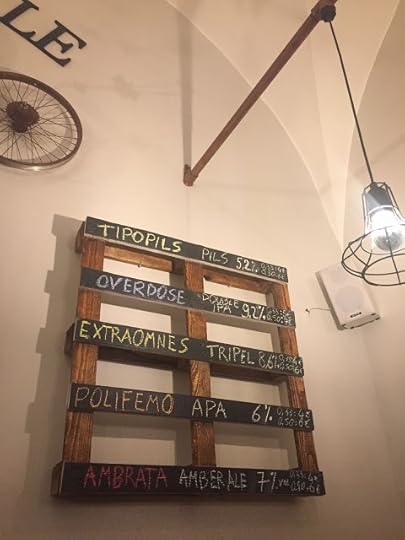 LE
TIPOPILS PILS 5.2% 0,33:4€
0,50:6€
OVERDOSE DOUBLE IPA 9,2%
EXTRAOMNES TRIPEL 8,6%
POLIFEMO APA 6% 0,33:4€
0,50:6€
AMBRATA AMBER ALE 7% VOL 0,33:4€
0,50:6€